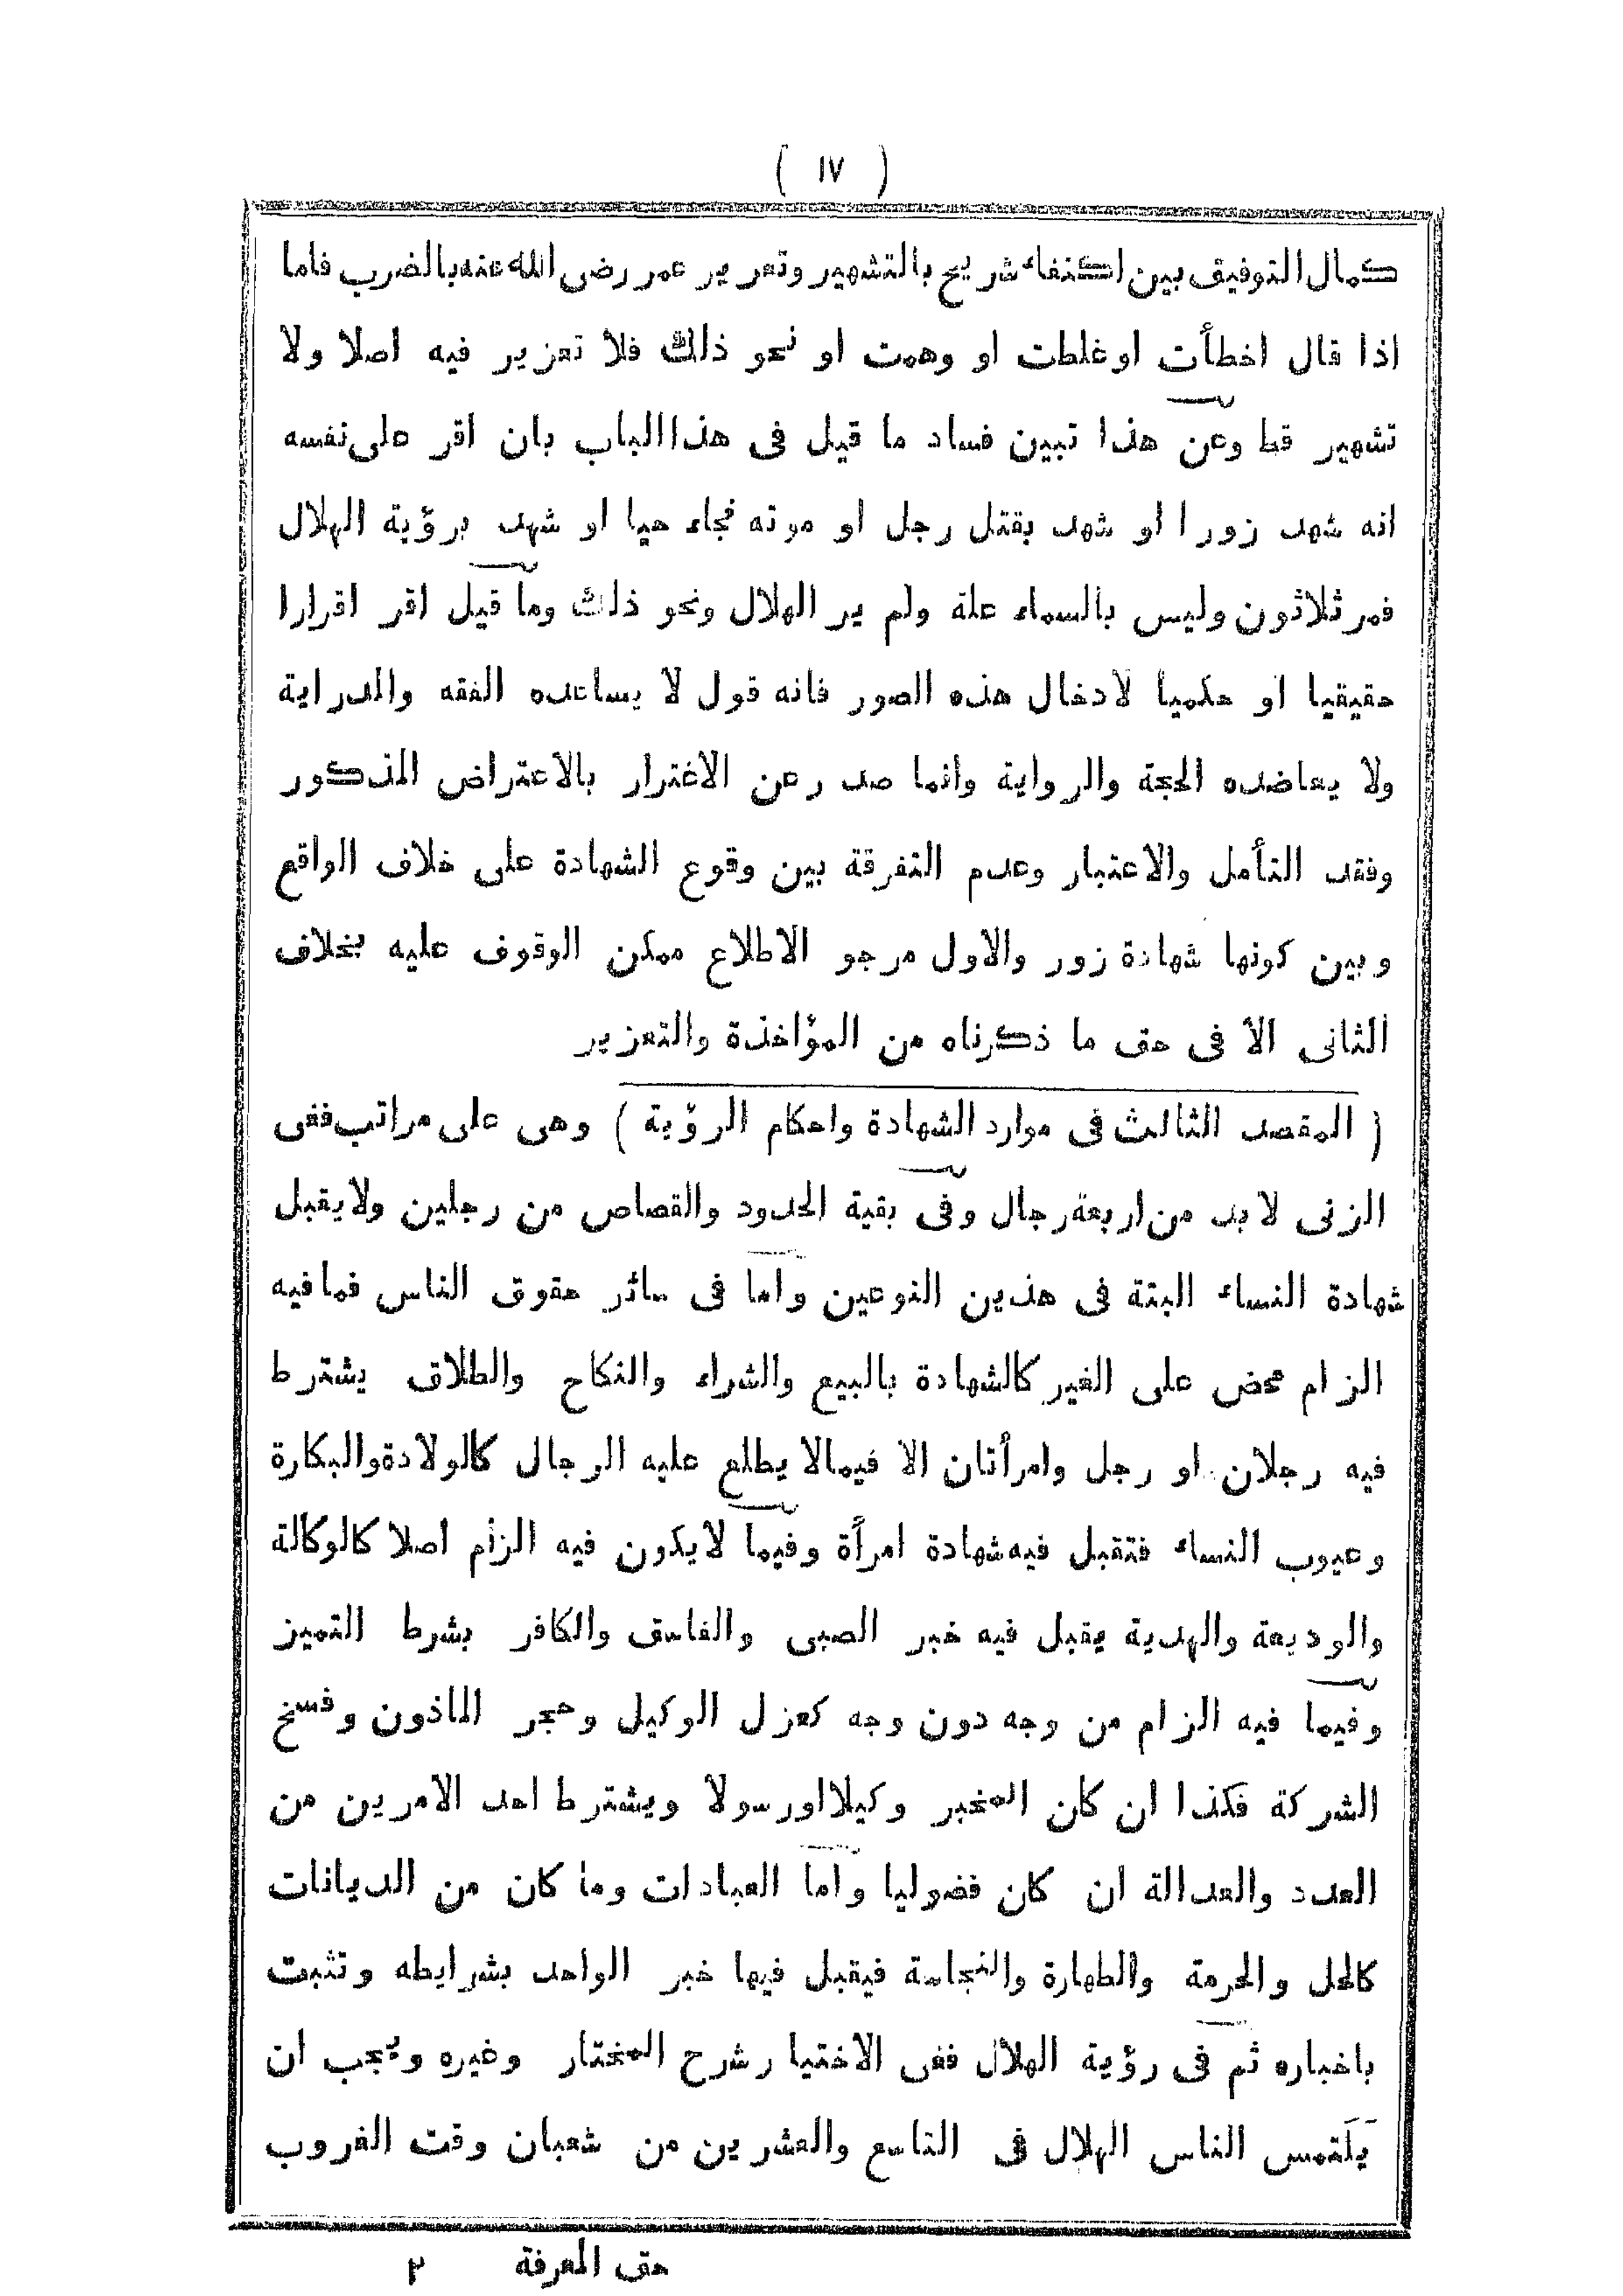 ( ١٧ )
كمال التوفيق بين اكتفاء شريح بالتشهير وتعرير عمر رضى الله عنه بالضرب فاما
اذا قال اخطأت اوغلطت او وهمت او نحو ذلك فلا تعزير فيه اصلا ولا
تشهير قط وعن هذا تبين فساد ما قيل فى هذا الباب بان اقر على نفسه
انه شهد زورا او شهد بقتل رجل او موته فجاء حيا او شهد برؤية الهلال
فمر ثلاثون وليس بالسماء علة ولم ير الهلال ونحو ذلك وما قيل اقر اقرارا
حقيقيا او حكميا لادخال هذه الصور فانه قول لا يساعده الفقه والدراية
ولا يعاضده الحجة والرواية وانما صدر عن الاغترار بالاعتراض المذكور
وفقد التأمل والاعتبار وعدم التفرقة بين وقوع الشهادة على خلاف الواقع
وبين كونها شهادة زور والاول مرجو الاطلاع ممكن الوقوف عليه بخلاف
الثانى الا فى حق ما ذكرناه من المؤاخذة والتعزير
( المقصد الثالث فى موارد الشهادة واحكام الرؤية ) وهى على مراتب ففى
الزنى لا بد من اربعة رجال وفى بقية الحدود والقصاص من رجلين ولايقبل
شهادة النساء البتة فى هذين النوعين واما فى سائر حقوق الناس فمافيه
الزام محض على الغير كالشهادة بالبيع والشراء والنكاح والطلاق يشترط
فيه رجلان او رجل وامرأتان الا فيمالا يطلع عليه الرجال كالولادة والبكارة
وعيوب النساء فتقبل فيه شهادة امرأة وفيما لايكون فيه الزام اصلا كالوكالة
والوديعة والهدية يقبل فيه خبر الصبى والفاسق والكافر بشرط التميز
وفيما فيه الزام من وجه دون وجه كعزل الوكيل وحجر الماذون وفسخ
الشركة فكذا ان كان المخبر وكيلا اورسولا ويشترط احد الامرين من
العدد والعدالة ان كان فضوليا واما العبادات وما كان من الديانات
كالحل والحرمة والطهارة والنجاسة فيقبل فيها خبر الواحد بشرايطه وتثبت
باخباره ثم فى رؤية الهلال ففى الاختيار شرح المختار وغيره ويجب ان
يلتمس الناس الهلال فى التاسع والعشرين من شعبان وقت الغروب
حق المعرفة ٢